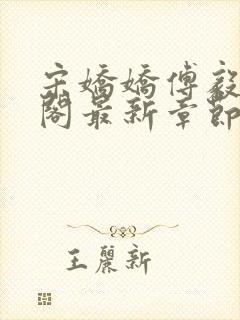 宋嬌嬌傅毅
閣最新章節
王麗新